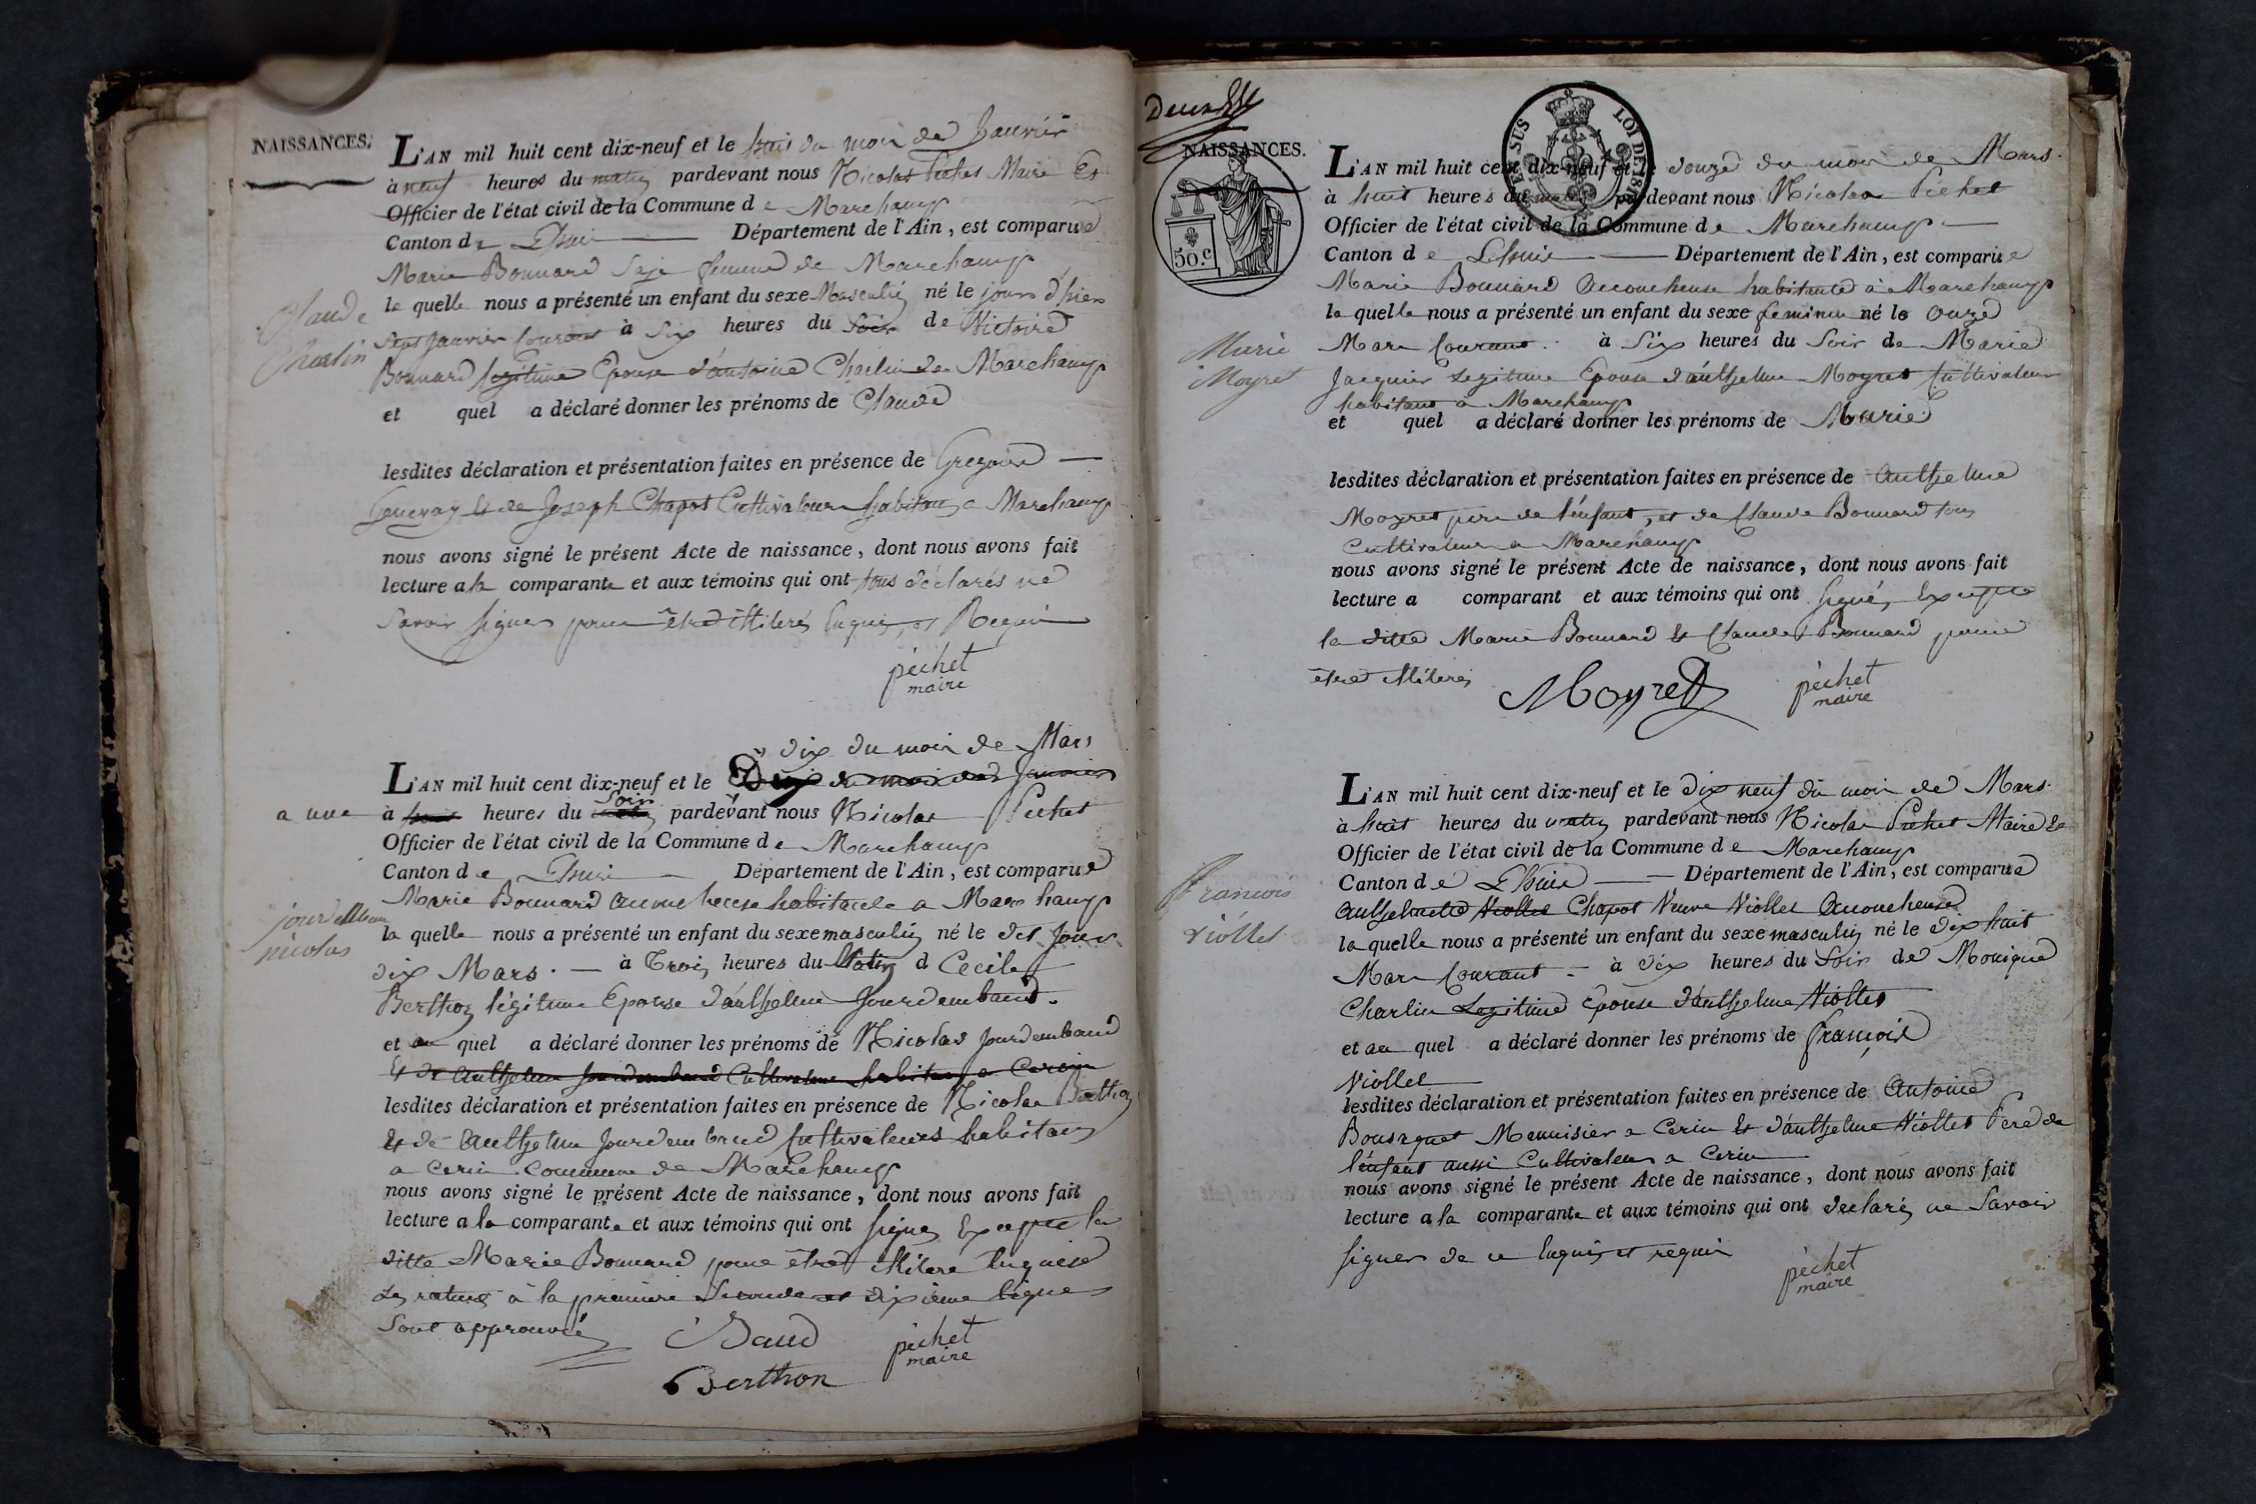 NAISSANCES.
L'AN mil huit cent dix-neuf et le huit du mois de Janvier
à neuf heures du matin pardevant nous Nicolas Pichet Maire Et
Officier de l'état civil de la Commune de Marchamp
Canton de Lhuis Département de l'Ain, est comparue
Marie Bonnard Sage femme de Marchamp
la quelle nous a présenté un enfant du sexe Masculin né le jour d'hier
Claude
Sept Janvier Courant à Six heures du Soir de Victoire
Charlin
Bonnard légitime Epouse d'antoine Charlin de Marchamp
et quel a déclaré donner les prénoms de Claude
lesdites déclaration et présentation faites en présence de Gregoire
Genevay & de Joseph Chapot Cultivateurs habitans a Marchamp
nous avons signé le présent Acte de naissance, dont nous avons fait
lecture a la comparante et aux témoins qui ont tous déclarés ne
Savoir signer pour être illiterés Enquis, et Requis
péchet
maire
dix du mois de Mars
L'AN mil huit cent dix-neuf et le Dix du mois de Janvier
a une
à huit heures du Soir pardevant nous Nicolas Pichet
Officier de l'état civil de la Commune de Marchamp
Canton de Lhuis Département de l'Ain, est comparue
Marie Bonnard accoucheuse habitante a Marchamp
jourdembaud
la quelle nous a présenté un enfant du sexe masculin né le dit Jour
nicolas
dix Mars. à Trois heures du Matin d Cecile
Berthon légitime Epouse d'anthelme Jourdembaud.
et au quel a déclaré donner les prénoms de Nicolas Jourdembaud
Et de Anthelme Jourdembaud Cultivateur habitans a Cerin
lesdites déclaration et présentation faites en présence de Nicolas Berthon
Et de Anthelme Jourdembaud Cultivateurs habitans
a Cerin Commune de Marchamp
nous avons signé le présent Acte de naissance, dont nous avons fait
lecture a la comparante et aux témoins qui ont signés Excepté la
ditte Marie Bonnard pour être illitere Enquise
Les ratures à la première Seconde et dixième lignes
Sont approuvés
Baud
péchet
maire
Berthon
NAISSANCES.
SUS
LOI DE 181
50.c
L'AN mil huit cent dix-neuf et le douze du mois de Mars.
à huit heures du matin pardevant nous Nicolas Pichet
Officier de l'état civil de la Commune de Marchamp
Canton de Lhuis Département de l'Ain, est comparue
Marie Bonnard accoucheuse habitante à Marchamp
la quelle nous a présenté un enfant du sexe feminin né le onze
Marie
Mars Courant. à Six heures du Soir de Marie
Moyret
Jacquier Legitime Epouse d'anthelme Moyret Cultivateur
habitant a Marchamp
et quel a déclaré donner les prénoms de Marie
lesdites déclaration et présentation faites en présence de anthelme
Moyret pere de l'enfant, et de Claude Bonnard tous
Cultivateurs a Marchamp
nous avons signé le présent Acte de naissance, dont nous avons fait
lecture a comparant et aux témoins qui ont signés Excepté
la ditte Marie Bonnard Et Claude Bonnard pour
être illiterés
Moyret
péchet
maire
L'AN mil huit cent dix-neuf et le dix neuf du mois de Mars.
à huit heures du matin pardevant nous Nicolas Pichet Maire Et
Officier de l'état civil de la Commune de Marchamp
Canton de Lhuis Département de l'Ain, est comparue
francois
Anthelmette Viollet Chapot Veuve Viollet Accoucheuse
Viollet
la quelle nous a présenté un enfant du sexe masculin né le dix huit
Mars Courant à dix heures du Soir de Monique
Charlin Legitime Epouse d'anthelme Viollet
et au quel a déclaré donner les prénoms de françois
Viollet
lesdites déclaration et présentation faites en présence de Antoine
Bousquet Menuisier a Cerin Et d'anthelme Viollet Pere de
l'enfant aussi Cultivateur a Cerin
nous avons signé le présent Acte de naissance, dont nous avons fait
lecture a la comparante et aux témoins qui ont declarés ne Savoir
signer de ce Enquis et requis
péchet
maire